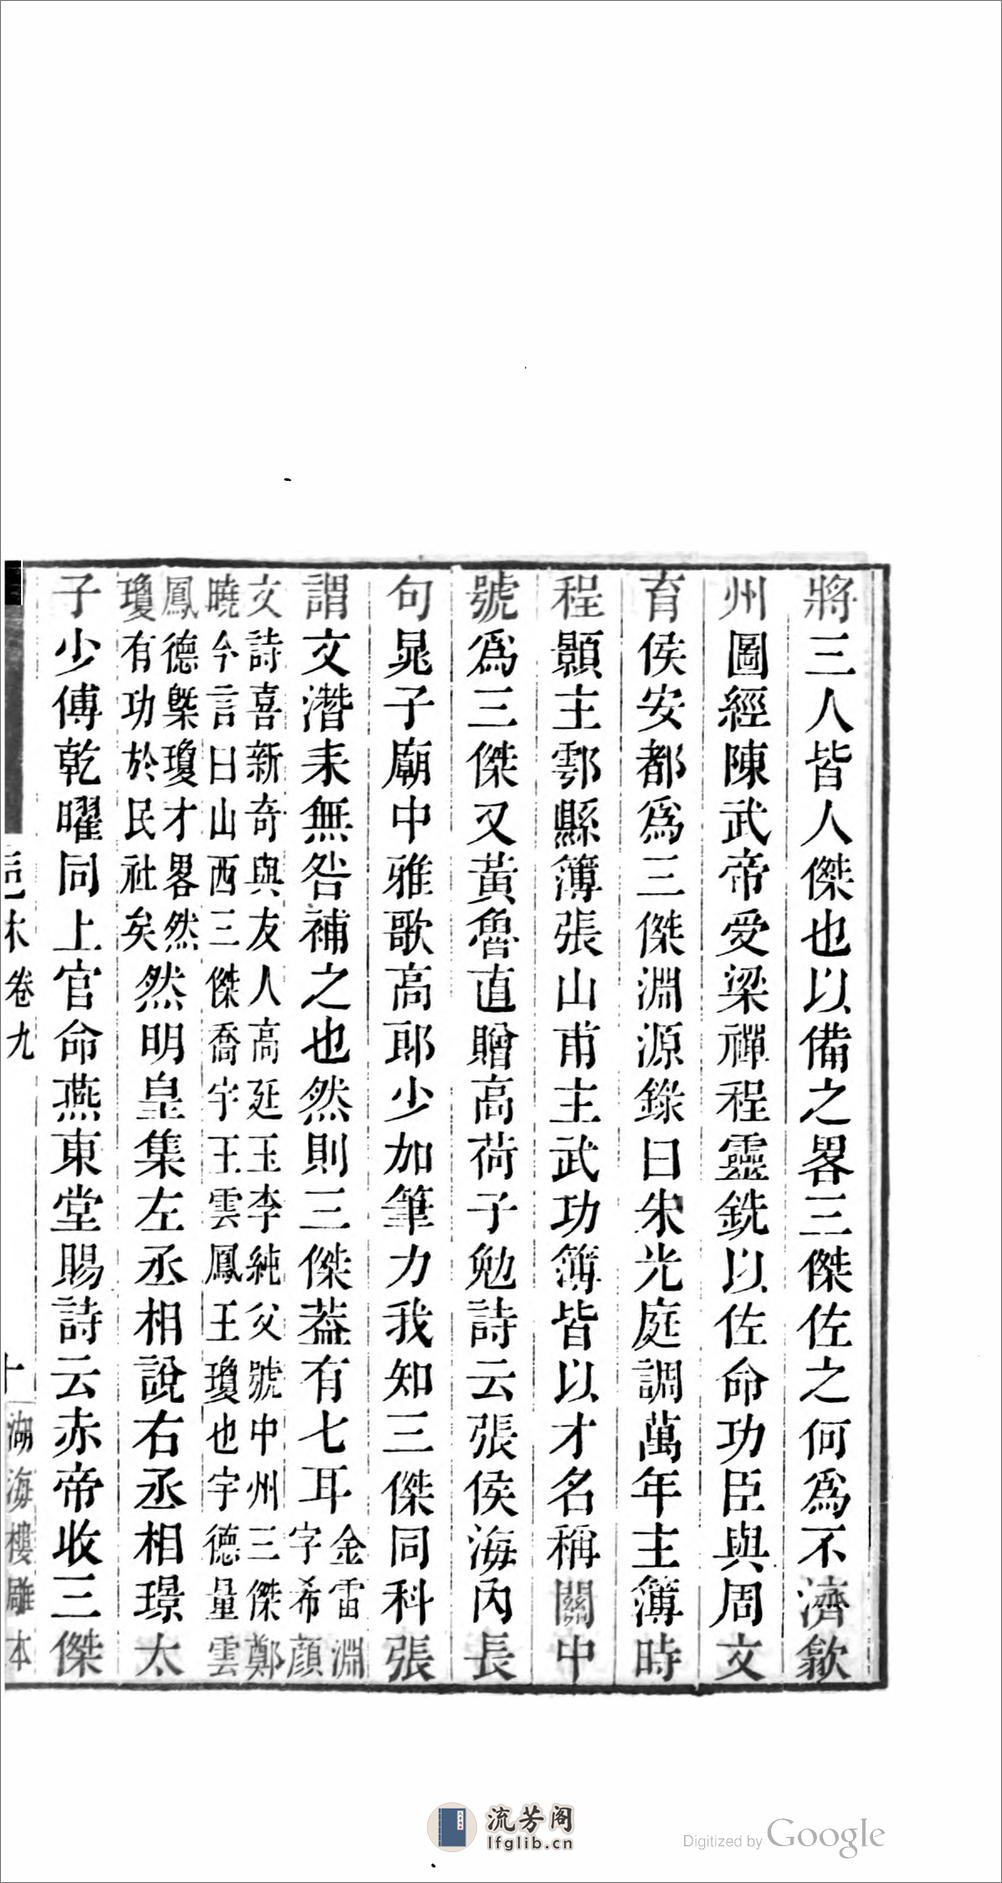 將三人皆人傑也以備之畧三傑佐之何爲不濟歙
州圖經陳武帝受梁禪程靈銑以佐命功臣與周文
育侯安都爲三傑淵源錄曰朱光庭調萬年主簿時
程顥主鄠縣簿張山甫主武功簿皆以才名稱關中
號爲三傑又黃魯直贈高荷子勉詩云張侯海內長
句晁子廟中雅歌高郎少加筆力我知三傑同科張
謂文潛耒無咎補之也然則三傑葢有七耳金雷淵
字希顏
文詩喜新奇與友人高延玉李純父號中州三傑鄭
曉今言曰山西三傑喬宇王雲鳳王瓊也宇德量雲
鳳德槩瓊才畧然
瓊有功於民社矣然明皇集左丞相說右丞相璟太
子少傅乾曜同上官命燕東堂賜詩云赤帝收三傑
卷九
湖海樓雕本
流芳阁
lfglib.cn
Digitized by Google